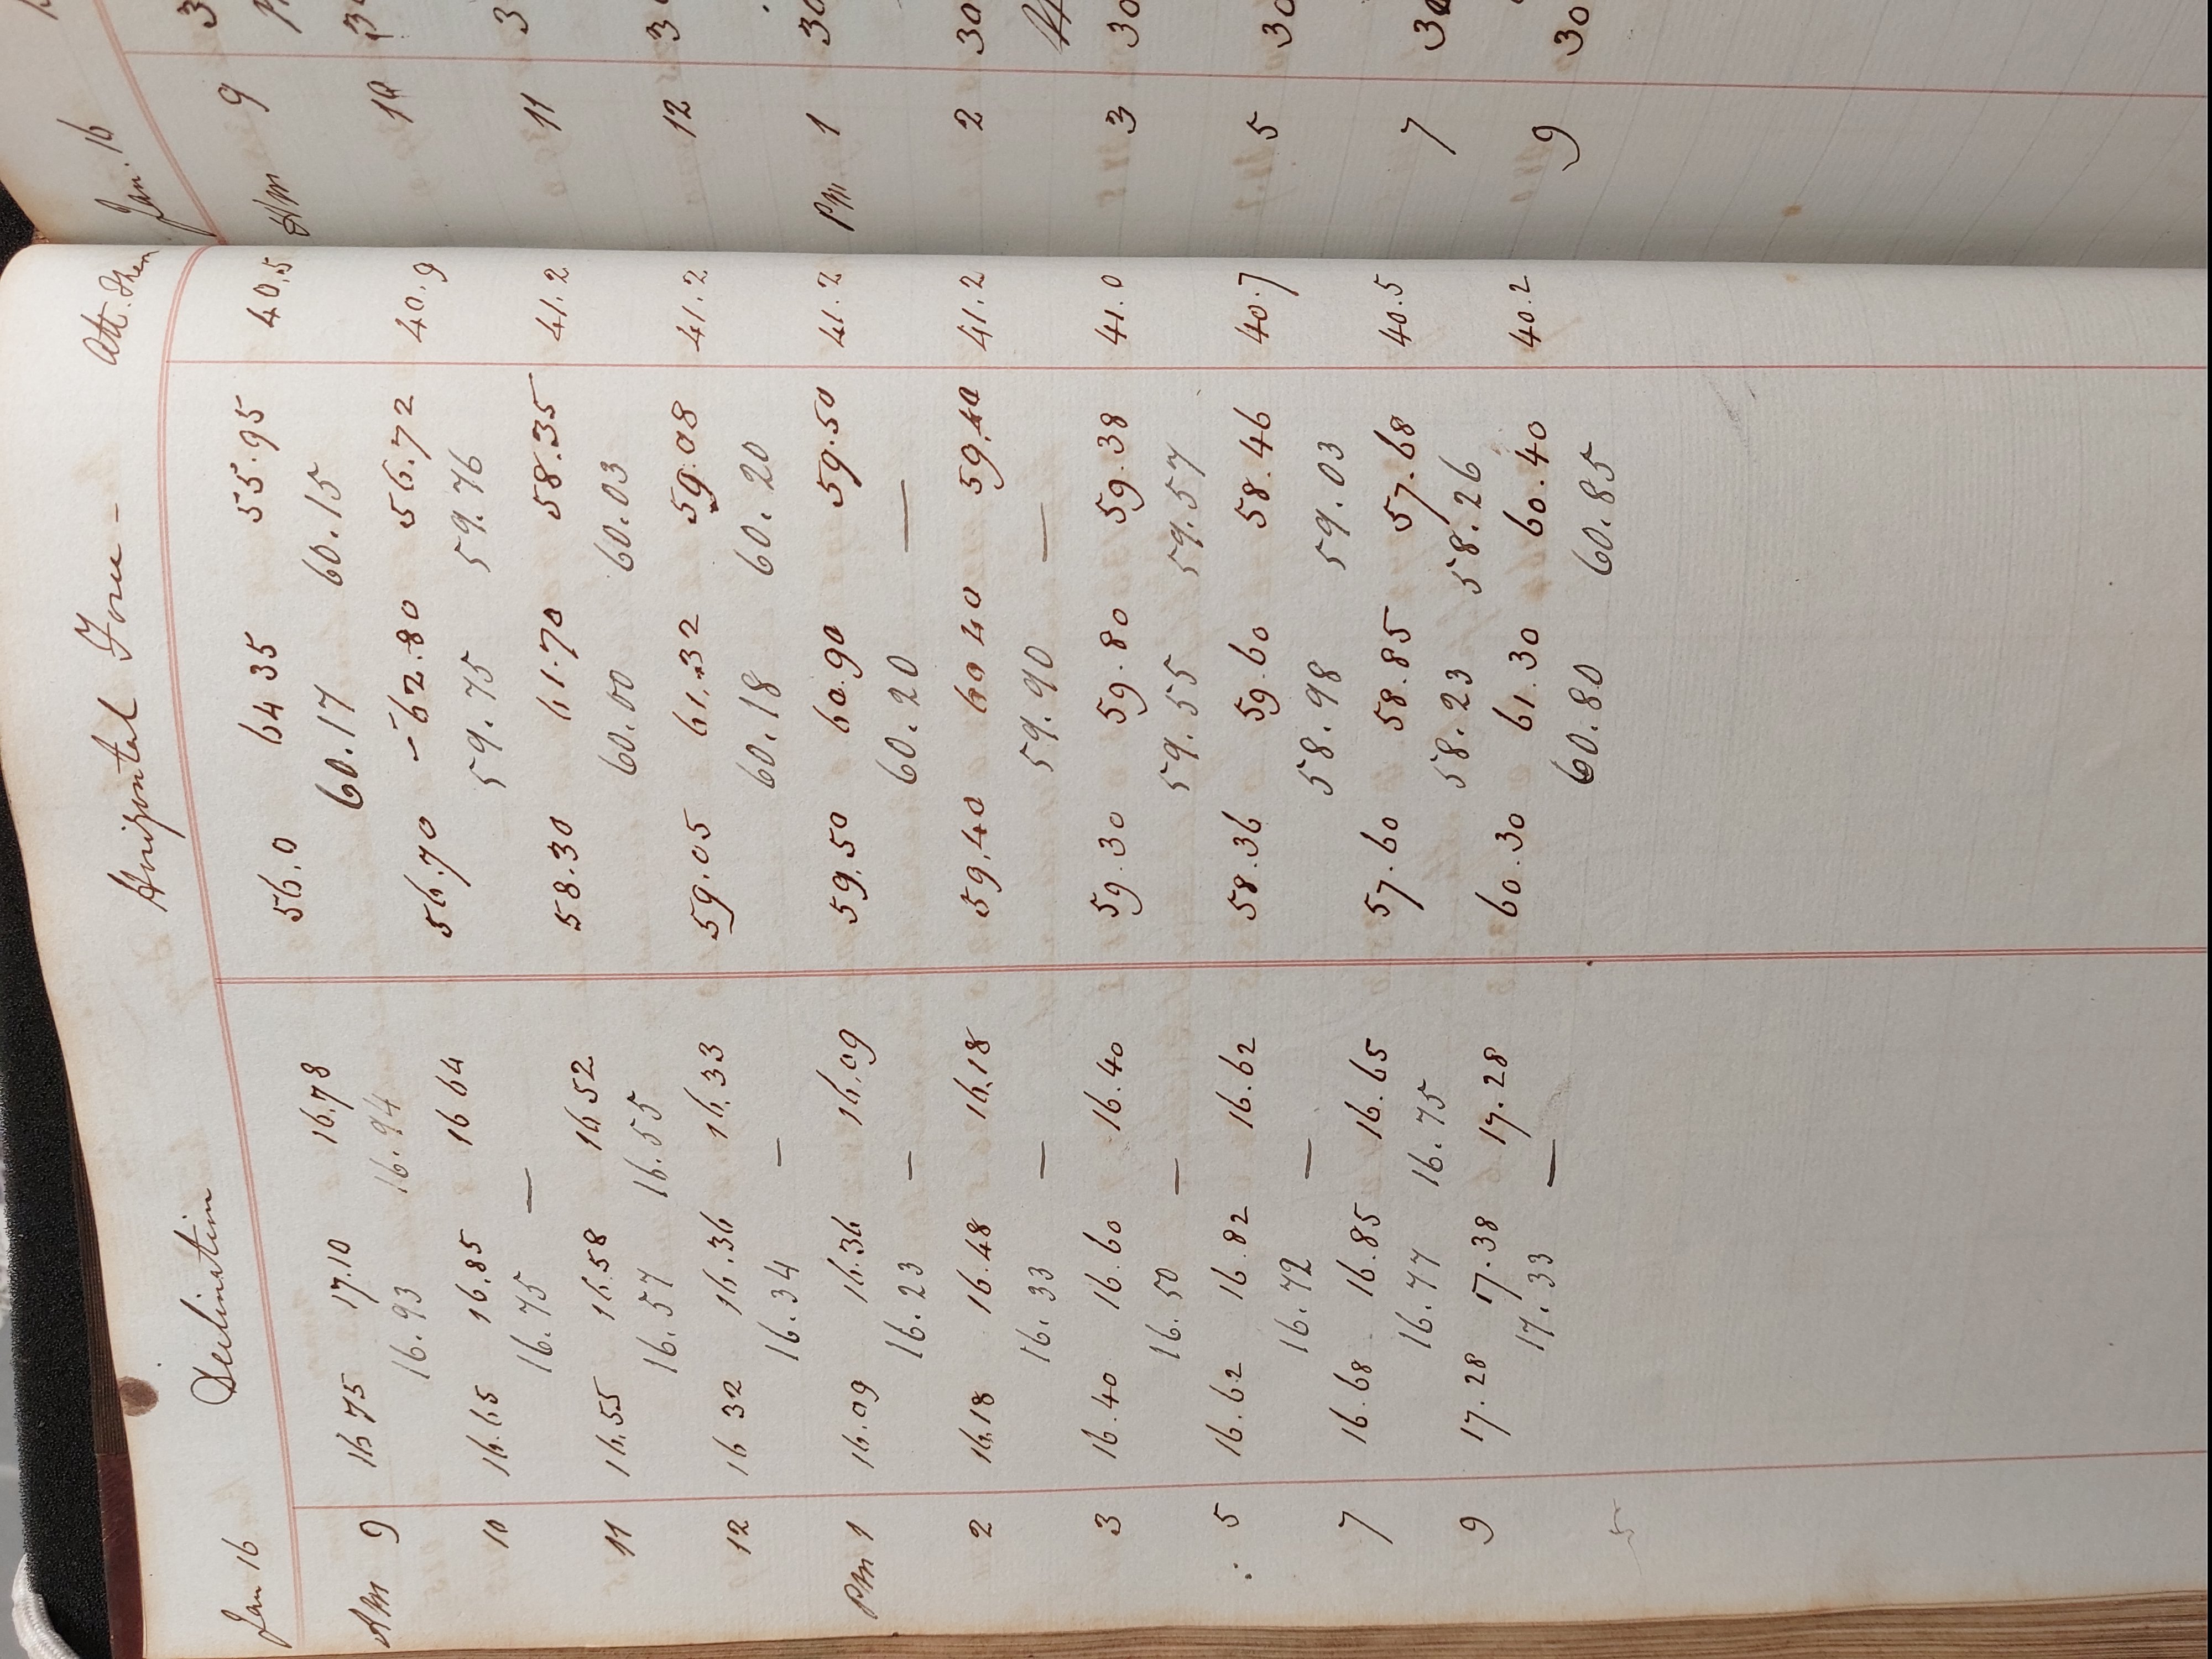 Jan 16 Declination Horizontal Force - Att. Ther
Am 9 16 75 17.10 16.78 56.0 64 35 55.95 40.5
16.93 16.94 60.17 60.15
10 16.65 16.85 16 64 56.70 - 62.80 56.72 40.9
16.75 — 59.75 59.76
11 16.55 16.58 16 52 58.30 61.70 58.35 41.2
16.57 16.55 60.00 60.03
12 16 32 16.36 16.33 59.05 61.32 59.08 41.2
16.34 — 60.18 60.20
Pm 1 16.09 16.36 16.09 59.50 60.90 59.50 41.2
16.23 — 60.20 —
2 16.18 16.48 16.18 59.40 60 40 59.40 41.2
16.33 — 59.90 —
3 16.40 16.60 16.40 59.30 59.80 59.38 41.0
16.50 — 59.55 59.57
5 16.62 16.82 16.62 58.36 59.60 58.46 40.7
16.72 — 58.98 59.03
7 16.68 16.85 16.65 57.60 58.85 57.68 40.5
16.77 16.75 58.23 58.26
9 17.28 17.38 17.28 60.30 61.30 60.40 40.2
17.33 — 60.80 60.85
Jan. 16
Am 9
10
11
12
Pm 1 30
2 30
3 30
5 30
7 30
9 30